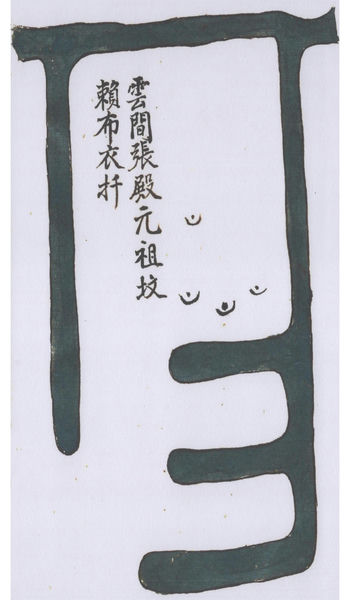 雲間張殿元祖坟
賴布衣扦